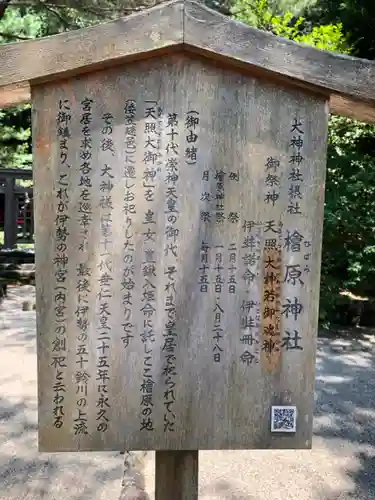 大神神社摂社 檜原神社
ひばら
御祭神 天照大神若御魂神
伊弉諾命 伊弉冊命
例祭 二月十五日
檜原神社祭 一月十五日・八月二十八日
月次祭 毎月十五日
(御由緒)
第十代崇神天皇の御代、それまで皇居で祀られていた
「天照大御神」を皇女豊鍬入姫命に託しここ檜原の地
(倭笠縫邑)に遷しお祀りしたのが始まりです
その後、大神様は第十一代垂仁天皇二十五年に永久の
宮居を求め各地を巡幸され、最後に伊勢の五十鈴川の上流
に御鎮まり、これが伊勢の神宮(内宮)の創祀と云われる